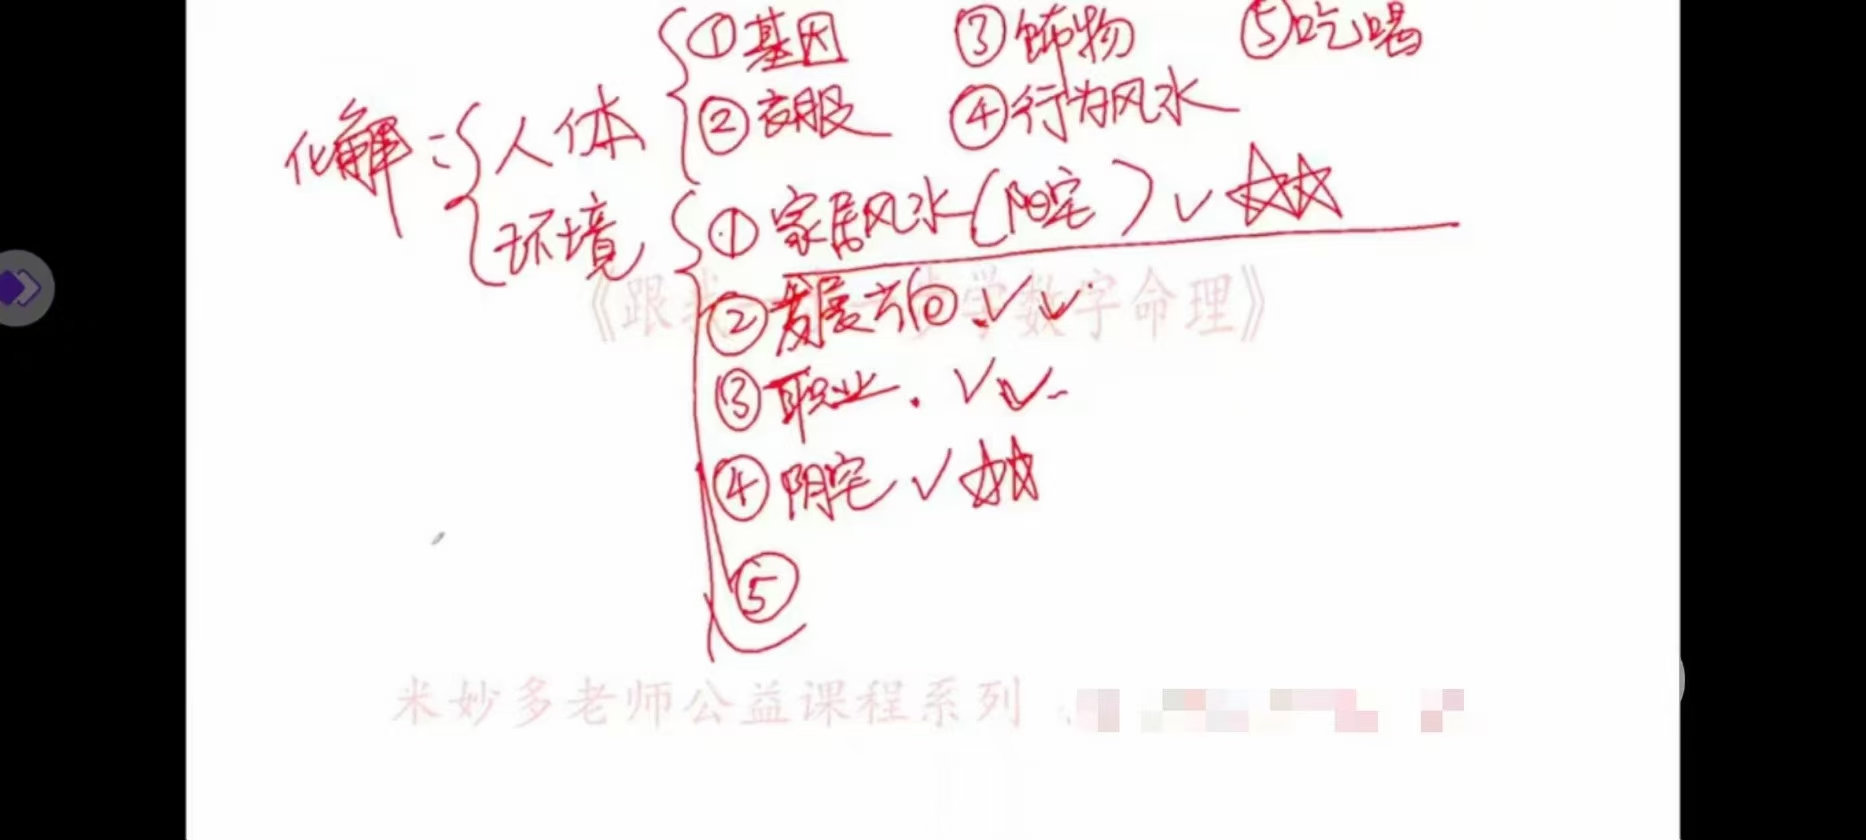 ①基因 ③饰物 ⑤吃喝
②衣服 ④行为风水
化解：人体
环境
①家居风水(阳宅)✓☆☆
②发展方向.✓✓.
③职业.✓✓.
④阴宅✓☆☆
⑤
《跟我一步一步学数字命理》
米妙多老师公益课程系列